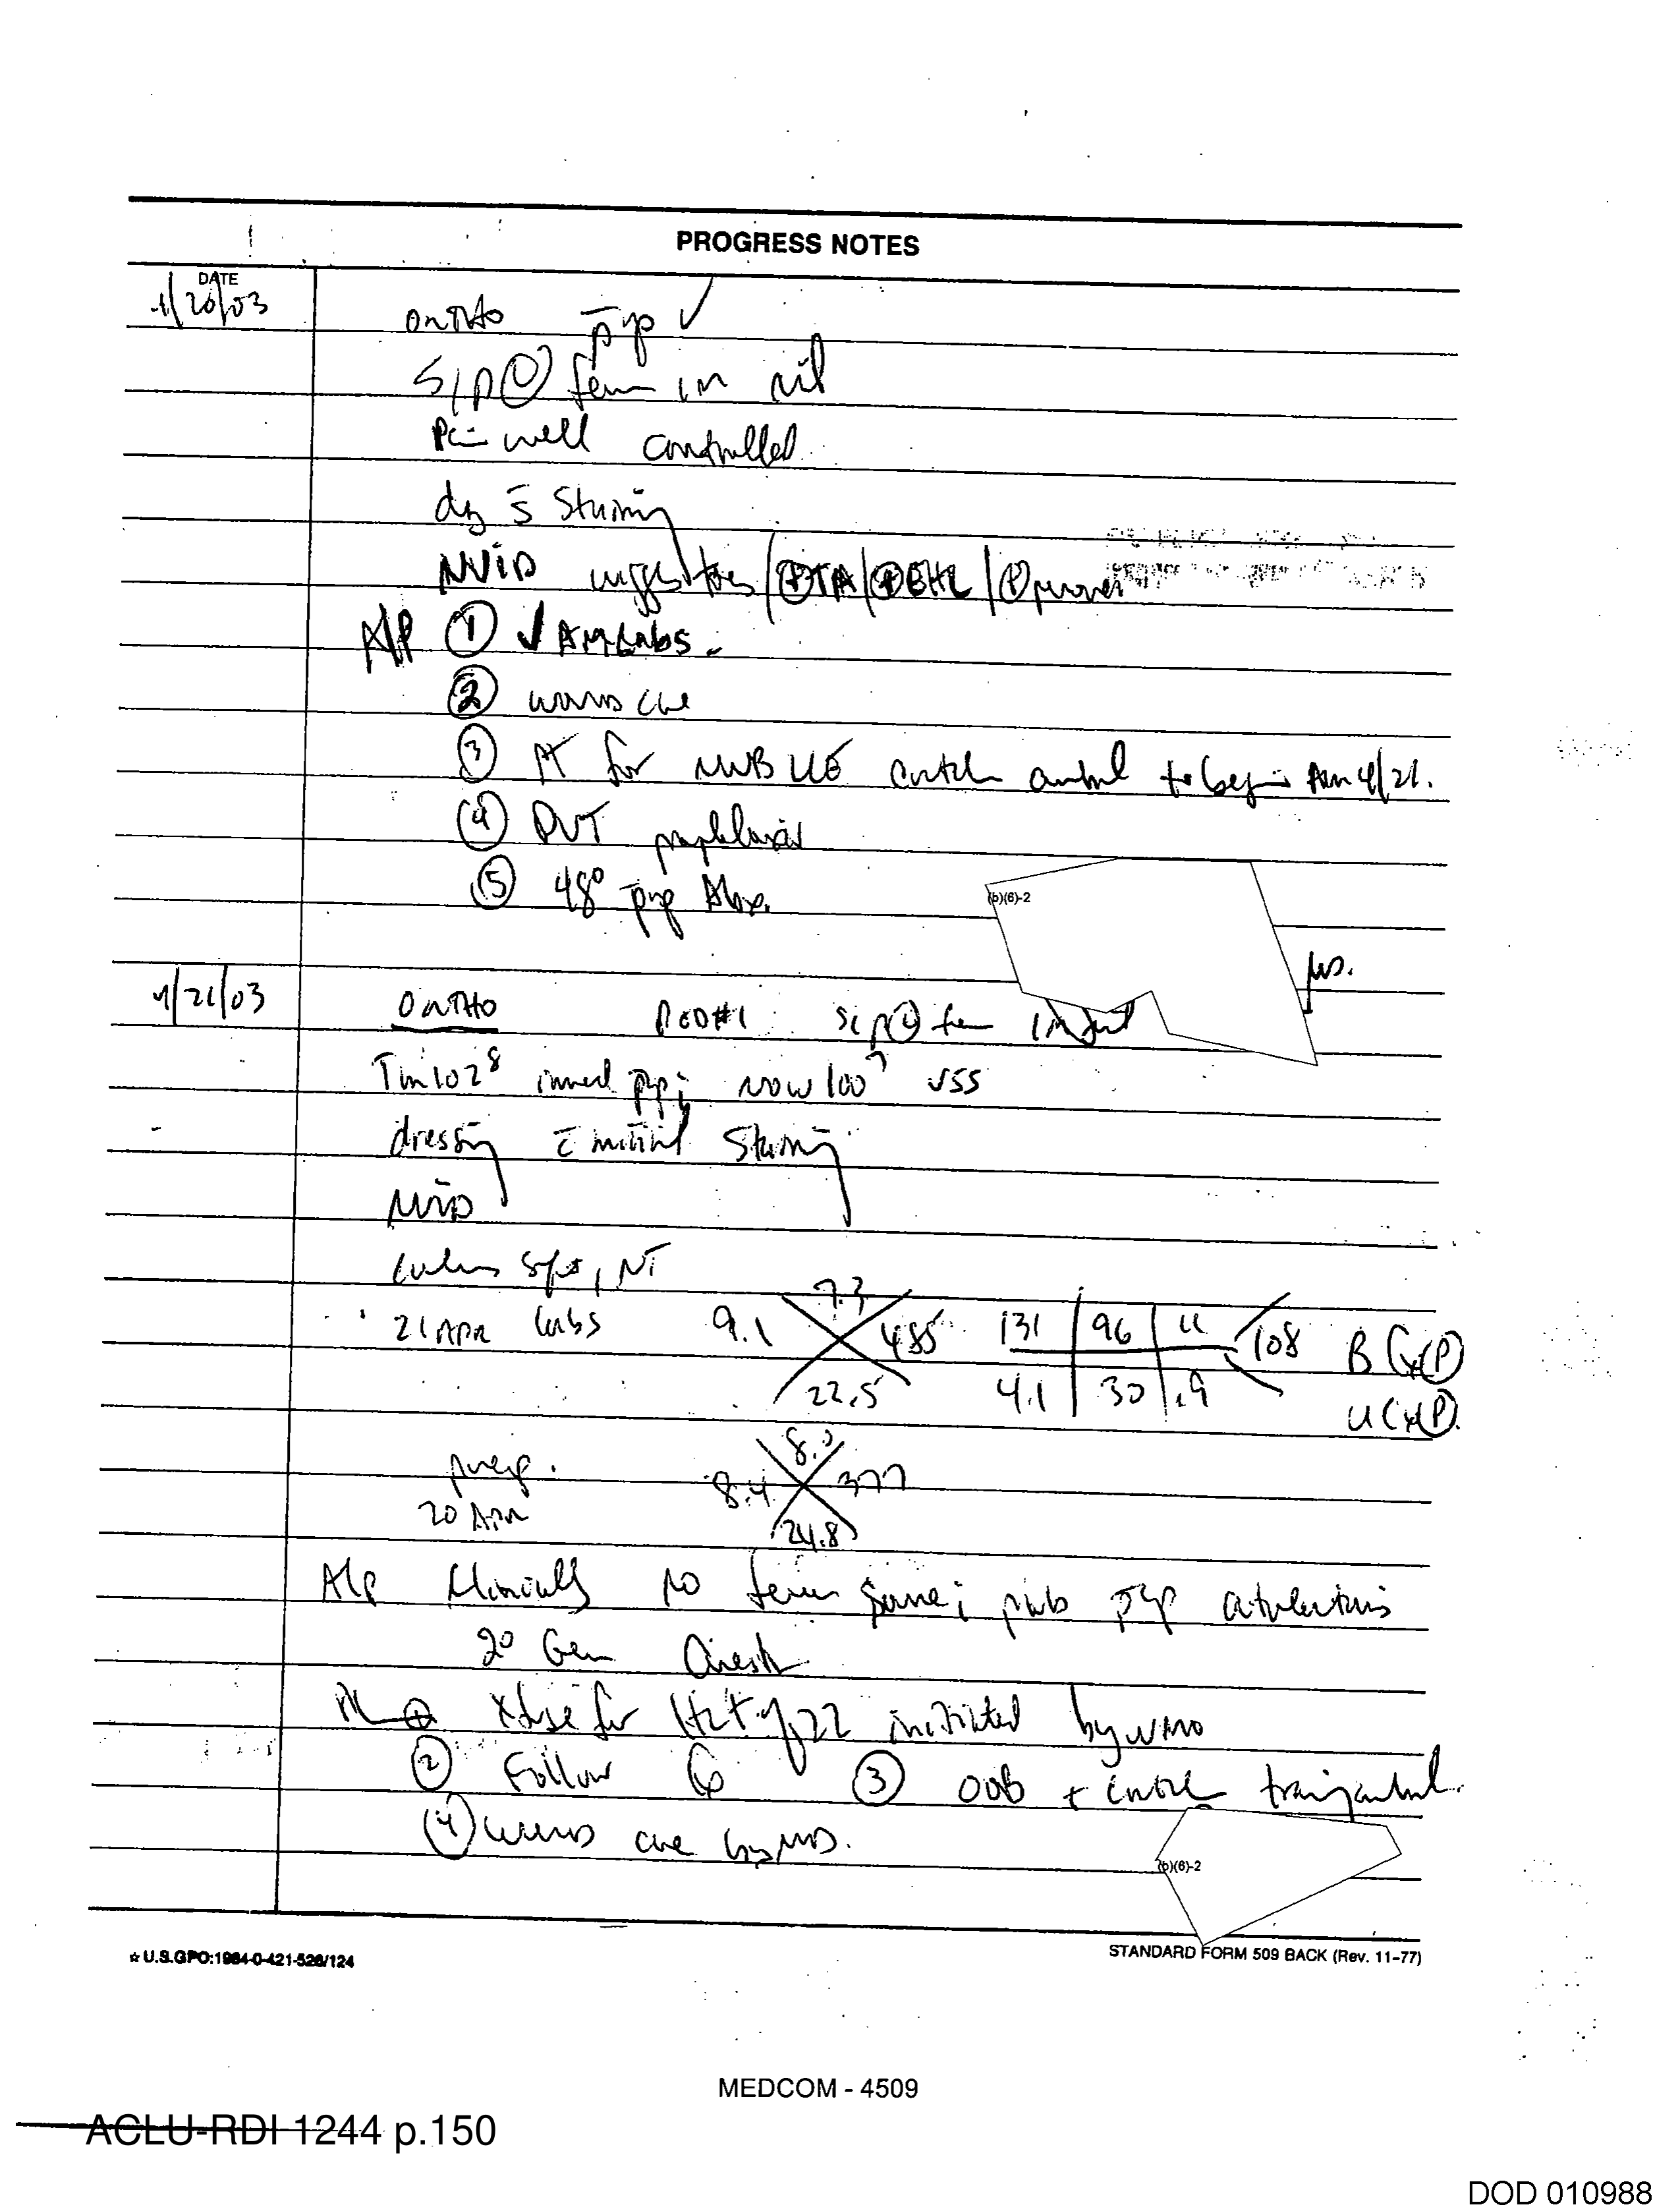 PROGRESS NOTES
DATE
4/20/03
ORTHO p̄op ✓
S/P Ⓛ fem IM nail
Pain well controlled
dsg s̄ staining
NVID wiggles toes / ⊕TA / ⊕EHL / ⊕
A/P ① ✓ AM Labs.
② wound care
③ PT for NWB LLE crutch ambul to begin AM 4/21.
④ DVT prophylaxis
⑤ 48° p̄op Abx.
(b)(6)-2
MD.
4/21/03
ORTHO POD#1 S/P Ⓛ fem IM nail
Tm 102⁸ immed p̄op; now 100⁷ VSS
dressing c̄ initial staining
NVID
soft, NT
21 APR labs 9.1 7.3 485 22.5 131 96 11 108 4.1 30 .9 B Cx Ⓟ
U Cx Ⓟ.
preop.
20 APR 8.4 8.0 377 24.8
A/P Clinically no fever source; prob p̄op atelectasis
2° Gen Anesth
PL ① Xfuse for Hct of 22 initiated by
② Follow Cx ③ OOB + crutch train/ambul.
④ wound care by MD.
(b)(6)-2
☆ U.S.GPO:1984-0-421-526/124
STANDARD FORM 509 BACK (Rev. 11-77)
MEDCOM - 4509
ACLU-RDI 1244 p.150
DOD 010988